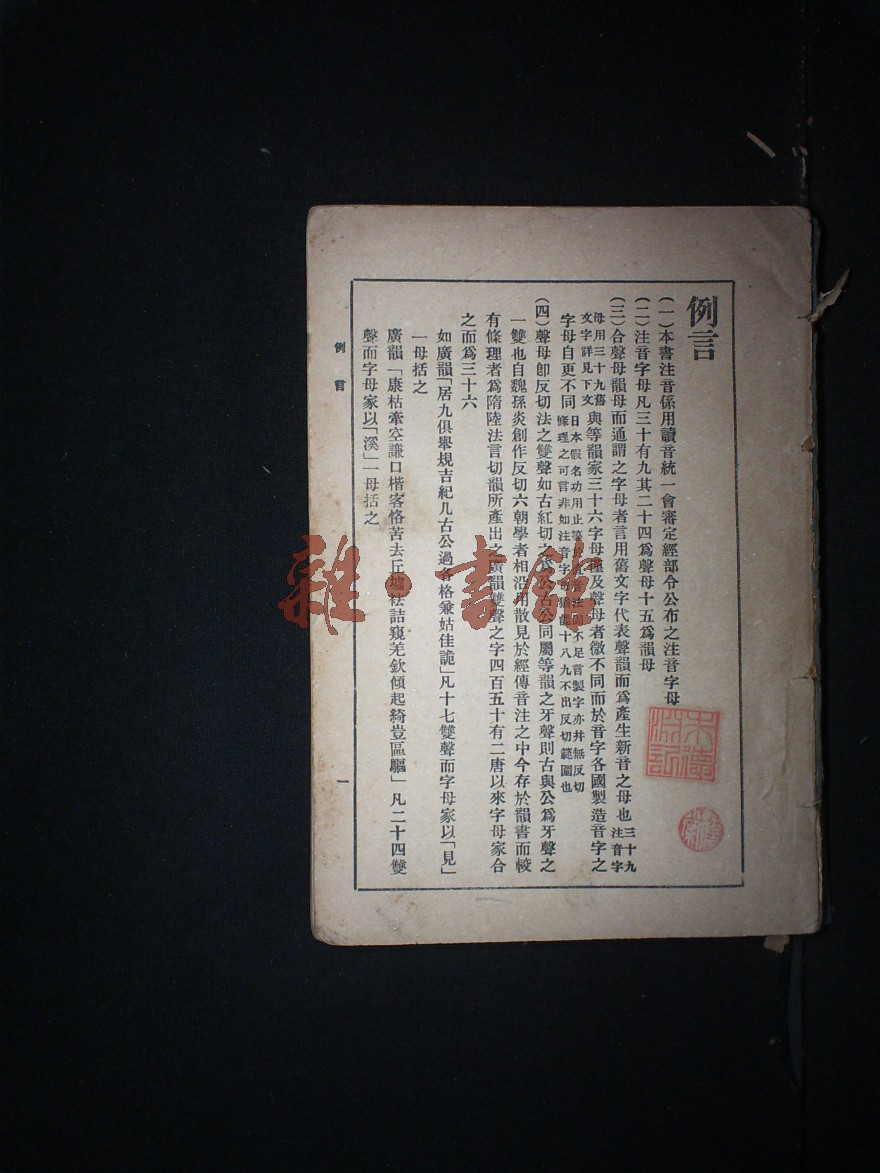 例言
(一)本書注音係用讀音統一會審定經部令公布之注音字母
(二)注音字母凡三十有九其二十四爲聲母十五爲韻母
(三)合聲母韻母而通謂之字母者言用舊文字代表聲韻而爲產生新音之母也三十九注音字
母用三十九舊文字詳見下文與等韻家三十六字母 及聲母者微不同而於音字各國製造音字之
字母自更不同日本假名功用止 於 音 注 不足言製字亦并無反切條理之可言非如注音字母猶 十八九不出反切範圍也
(四)聲母卽反切法之雙聲如古紅切之 公古公同屬等韻之牙聲則古與公爲牙聲之
一雙也自魏孫炎創作反切六朝學者相沿用散見於經傳音注之中今存於韻書而較
有條理者爲隋陸法言切韻所產出之廣韻雙聲之字四百五十有二唐以來字母家合
之而爲三十六
如廣韻「居九俱舉規吉紀几古公過各格兼姑佳詭」凡十七雙聲而字母家以「見」
一母括之
廣韻「康枯牽空謙口楷客恪苦去丘墟袪詰窺羌欽傾起綺豈區驅」凡二十四雙
聲而字母家以「溪」一母括之
例言
一
雜·書館